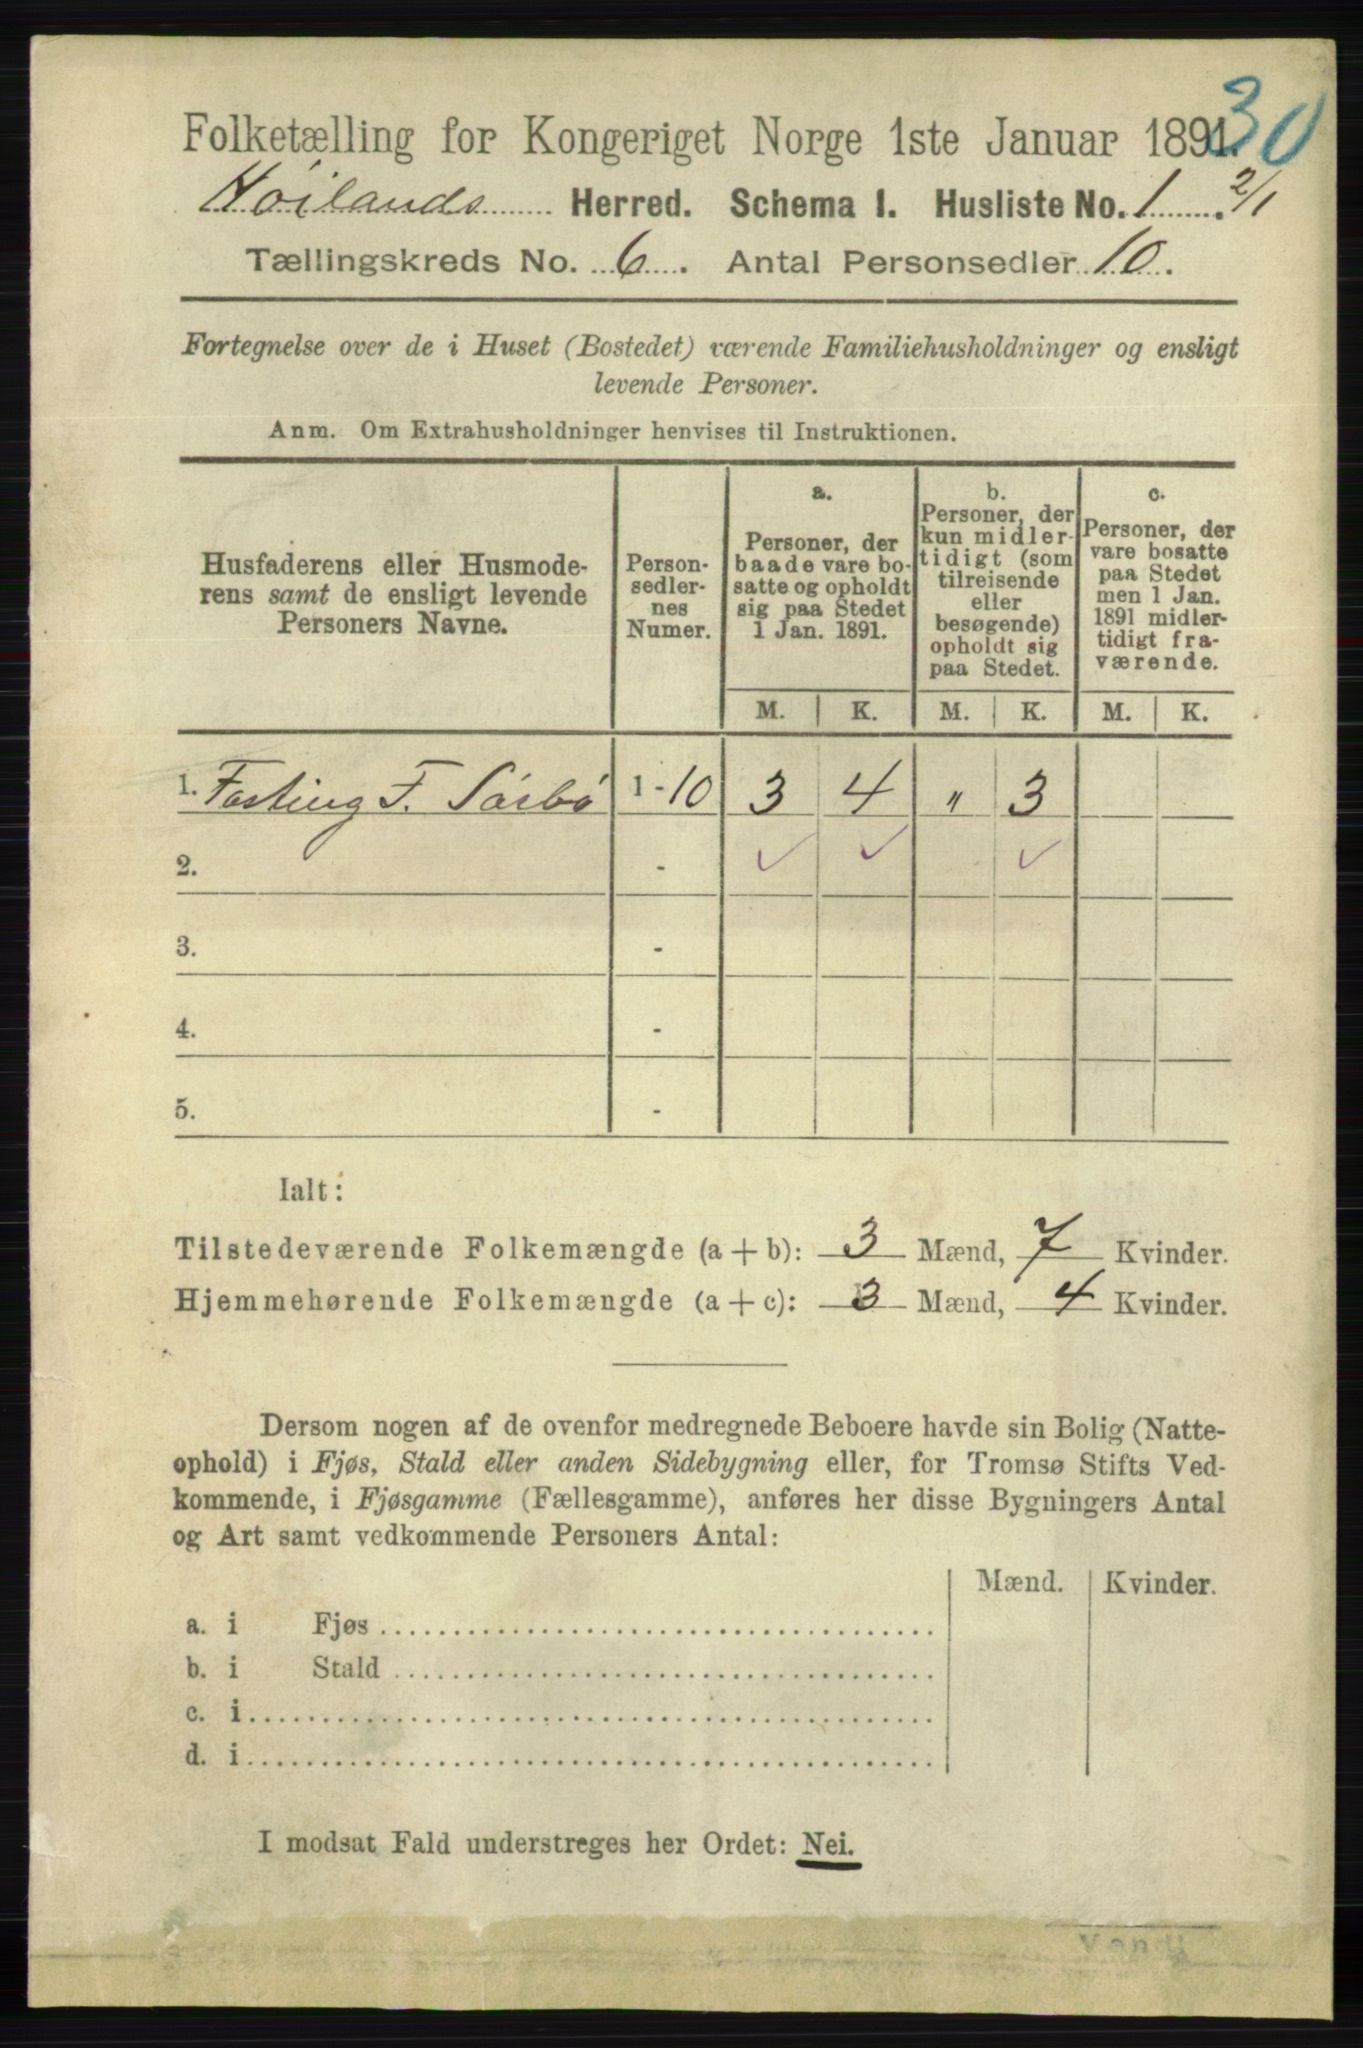 30
Folketælling for Kongeriget Norge 1ste Januar 1891.
Höilands Herred. Schema 1. Husliste No. 1. 2/1
Tællingskreds No. 6. Antal Personsedler 10.
Fortegnelse over de i Huset (Bostedet) værende Familiehusholdninger og ensligt
levende Personer.
Anm. Om Extrahusholdninger henvises til Instruktionen.
Husfaderens eller Husmode-
rens samt de ensligt levende
Personers Navne.
Person-
sedler-
nes
Numer.
a.
Personer, der
baade vare bo-
satte og opholdt
sig paa Stedet
1 Jan. 1891.
b.
Personer, der
kun midler-
tidigt (som
tilreisende
eller
besøgende)
opholdt sig
paa Stedet.
c.
Personer, der
vare bosatte
paa Stedet
men 1 Jan.
1891 midler-
tidigt fra-
værende.
M. K. M. K. M. K.
1. Fasting F. Sörbö 1-10 3 4 " 3
2. - ✓ ✓ ✓
3. -
4. -
5. -
Ialt:
Tilstedeværende Folkemængde (a + b): 3 Mænd, 7 Kvinder.
Hjemmehørende Folkemængde (a + c): 3 Mænd, 4 Kvinder.
Dersom nogen af de ovenfor medregnede Beboere havde sin Bolig (Natte-
ophold) i Fjøs, Stald eller anden Sidebygning eller, for Tromsø Stifts Ved-
kommende, i Fjøsgamme (Fællesgamme), anføres her disse Bygningers Antal
og Art samt vedkommende Personers Antal:
Mænd. Kvinder.
a. i Fjøs
b. i Stald
c. i
d. i
I modsat Fald understreges her Ordet: Nei.